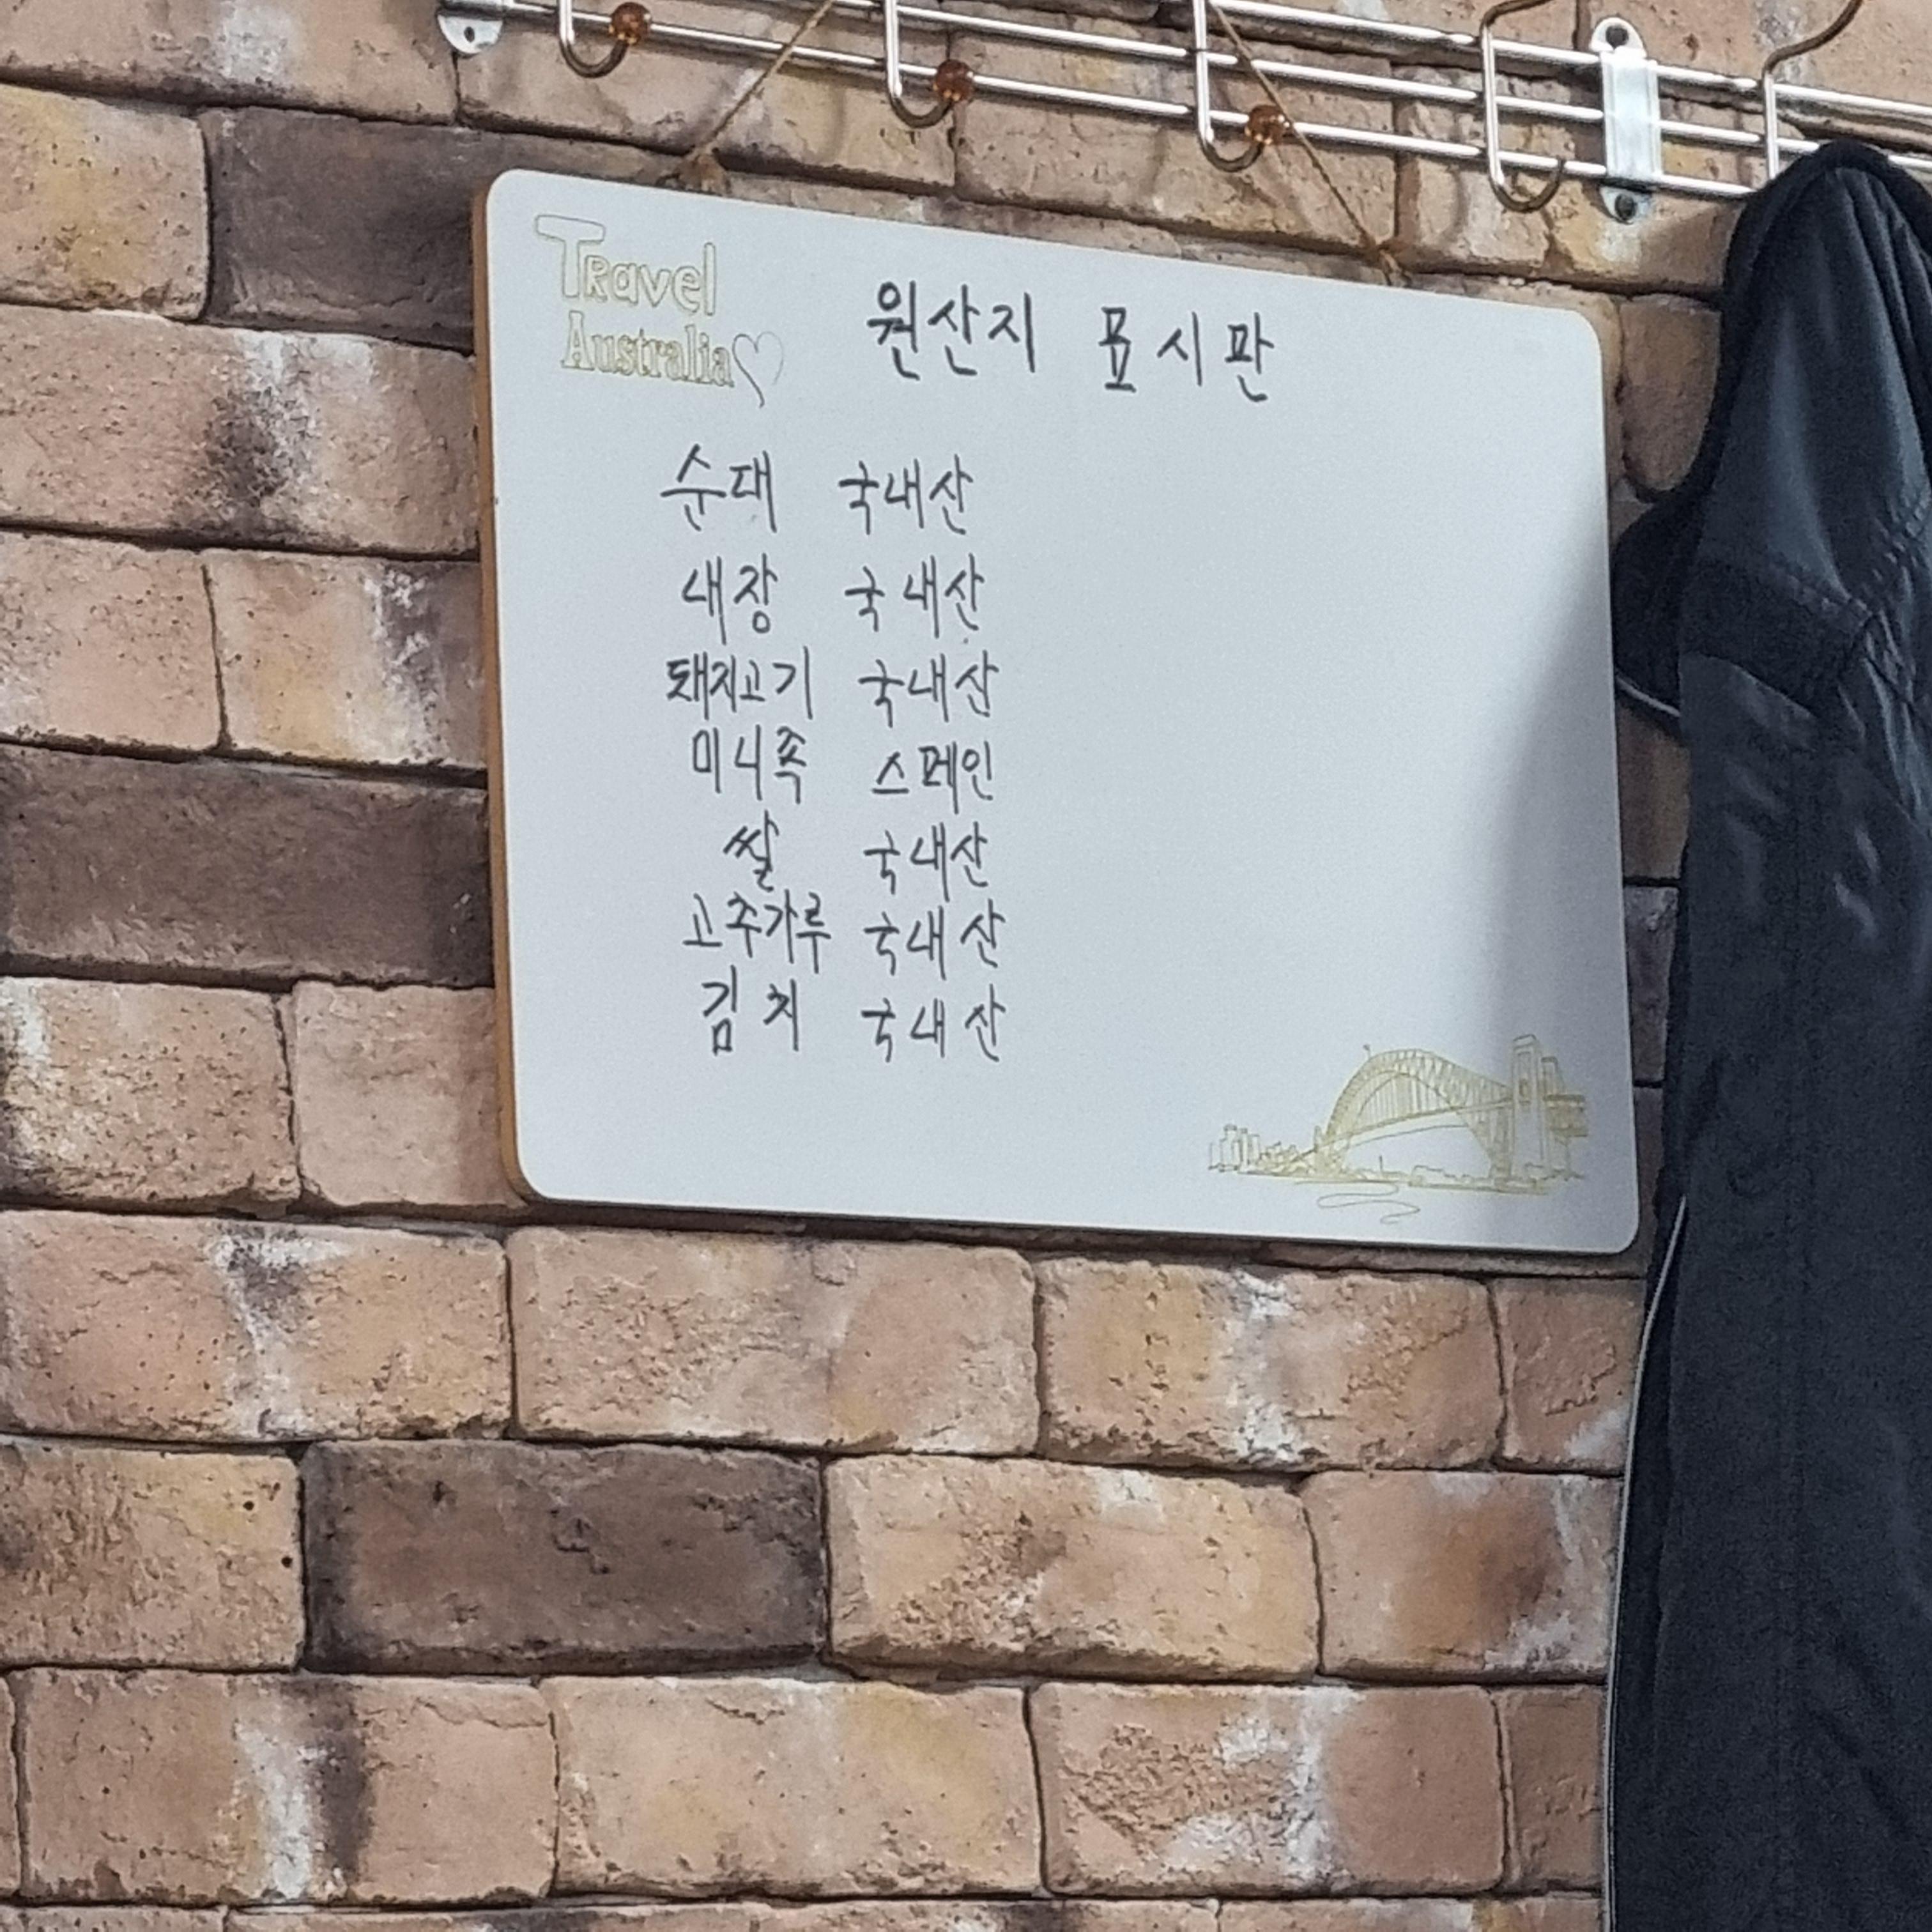 Travel
Australia
원산지 표시판
순대 국내산
내장 국내산
돼지고기 국내산
미니족 스페인
쌀 국내산
고추가루 국내산
김치 국내산